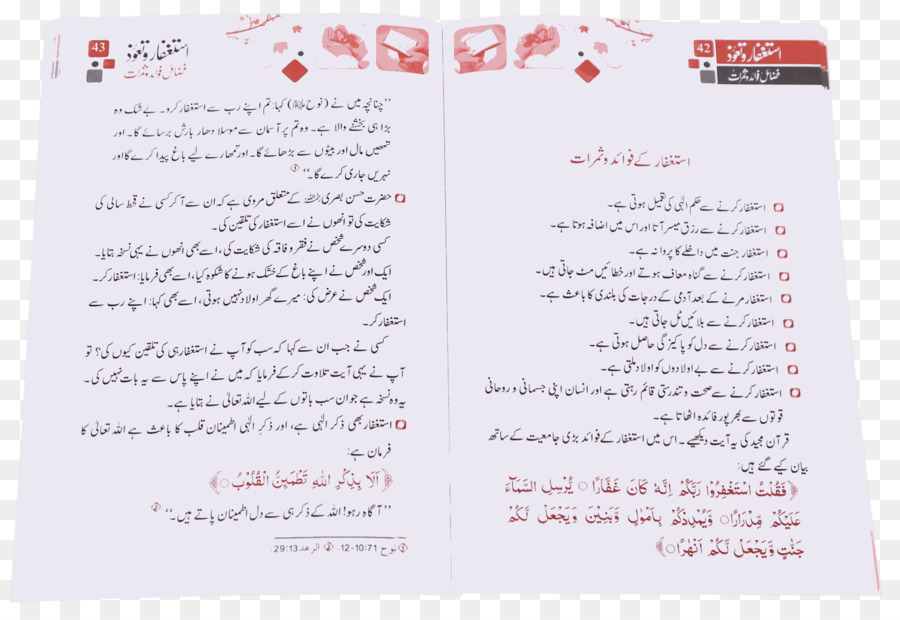 42
استغفار و تعوّذ
فضائل فوائد و ثمرات
استغفار کے فوائد و ثمرات
استغفار کرنے سے حکم الٰہی کی تعمیل ہوتی ہے۔
استغفار کرنے سے رزق میسر آتا اور اس میں اضافہ ہوتا ہے۔
استغفار جنت میں داخلے کا پروانہ ہے۔
استغفار کرنے سے گناہ معاف ہوتے اور خطائیں مٹ جاتی ہیں۔
استغفار مرنے کے بعد آدمی کے درجات کی بلندی کا باعث ہے۔
استغفار کرنے سے بلائیں ٹل جاتی ہیں۔
استغفار کرنے سے دل کو پاکیزگی حاصل ہوتی ہے۔
استغفار کرنے سے بے اولادوں کو اولاد ملتی ہے۔
استغفار کرنے سے صحت و تندرستی قائم رہتی ہے اور انسان اپنی جسمانی و روحانی
قوتوں سے بھرپور فائدہ اٹھاتا ہے۔
قرآن مجید کی یہ آیت دیکھیے۔ اس میں استغفار کے فوائد بڑی جامعیت کے ساتھ
بیان کیے گئے ہیں:
﴿فَقُلْتُ اسْتَغْفِرُوْا رَبَّكُمْ اِنَّهٗ كَانَ غَفَّارًا ○ يُّرْسِلِ السَّمَآءَ
عَلَيْكُمْ مِّدْرَارًا ○ وَّيُمْدِدْكُمْ بِاَمْوٰلٍ وَّبَنِيْنَ وَيَجْعَلْ لَّكُمْ
جَنّٰتٍ وَّيَجْعَلْ لَّكُمْ اَنْهٰرًا ○﴾
43
استغفار و تعوّذ
فضائل فوائد و ثمرات
’’چنانچہ میں نے (نوح علیہ السلام) کہا: تم اپنے رب سے استغفار کرو۔ بے شک وہ
بڑا ہی بخشنے والا ہے۔ وہ تم پر آسمان سے موسلا دھار بارش برسائے گا۔ اور
تمھیں مال اور بیٹوں سے بڑھائے گا۔ اور تمھارے لیے باغ پیدا کرے گا اور
نہریں جاری کرے گا۔‘‘ ①
حضرت حسن بصری رحمہ اللہ کے متعلق مروی ہے کہ ان سے آ کر کسی نے قحط سالی کی
شکایت کی تو انھوں نے اسے استغفار کی تلقین کی۔
کسی دوسرے شخص نے فقر و فاقہ کی شکایت کی، اسے بھی انھوں نے یہی نسخہ بتایا۔
ایک اور شخص نے اپنے باغ کے خشک ہونے کا شکوہ کیا، اسے بھی فرمایا: استغفار کر۔
ایک شخص نے عرض کی: میرے گھر اولاد نہیں ہوتی، اسے بھی کہا: اپنے رب سے
استغفار کر۔
کسی نے جب ان سے کہا کہ سب کو آپ نے استغفار ہی کی تلقین کیوں کی؟ تو
آپ نے یہی آیت تلاوت کر کے فرمایا کہ میں نے اپنے پاس سے یہ بات نہیں کی۔
یہ وہ نسخہ ہے جو ان سب باتوں کے لیے اللہ تعالیٰ نے بتایا ہے۔
استغفار بھی ذکر الٰہی ہے، اور ذکر الٰہی اطمینان قلب کا باعث ہے اللہ تعالیٰ کا
فرمان ہے:
﴿اَلَا بِذِكْرِ اللّٰهِ تَطْمَىِٕنُّ الْقُلُوْبُ ○﴾
’’آگاہ رہو! اللہ کے ذکر ہی سے دل اطمینان پاتے ہیں۔‘‘ ②
① نوح 71:10-12. ② الرعد 13:29.